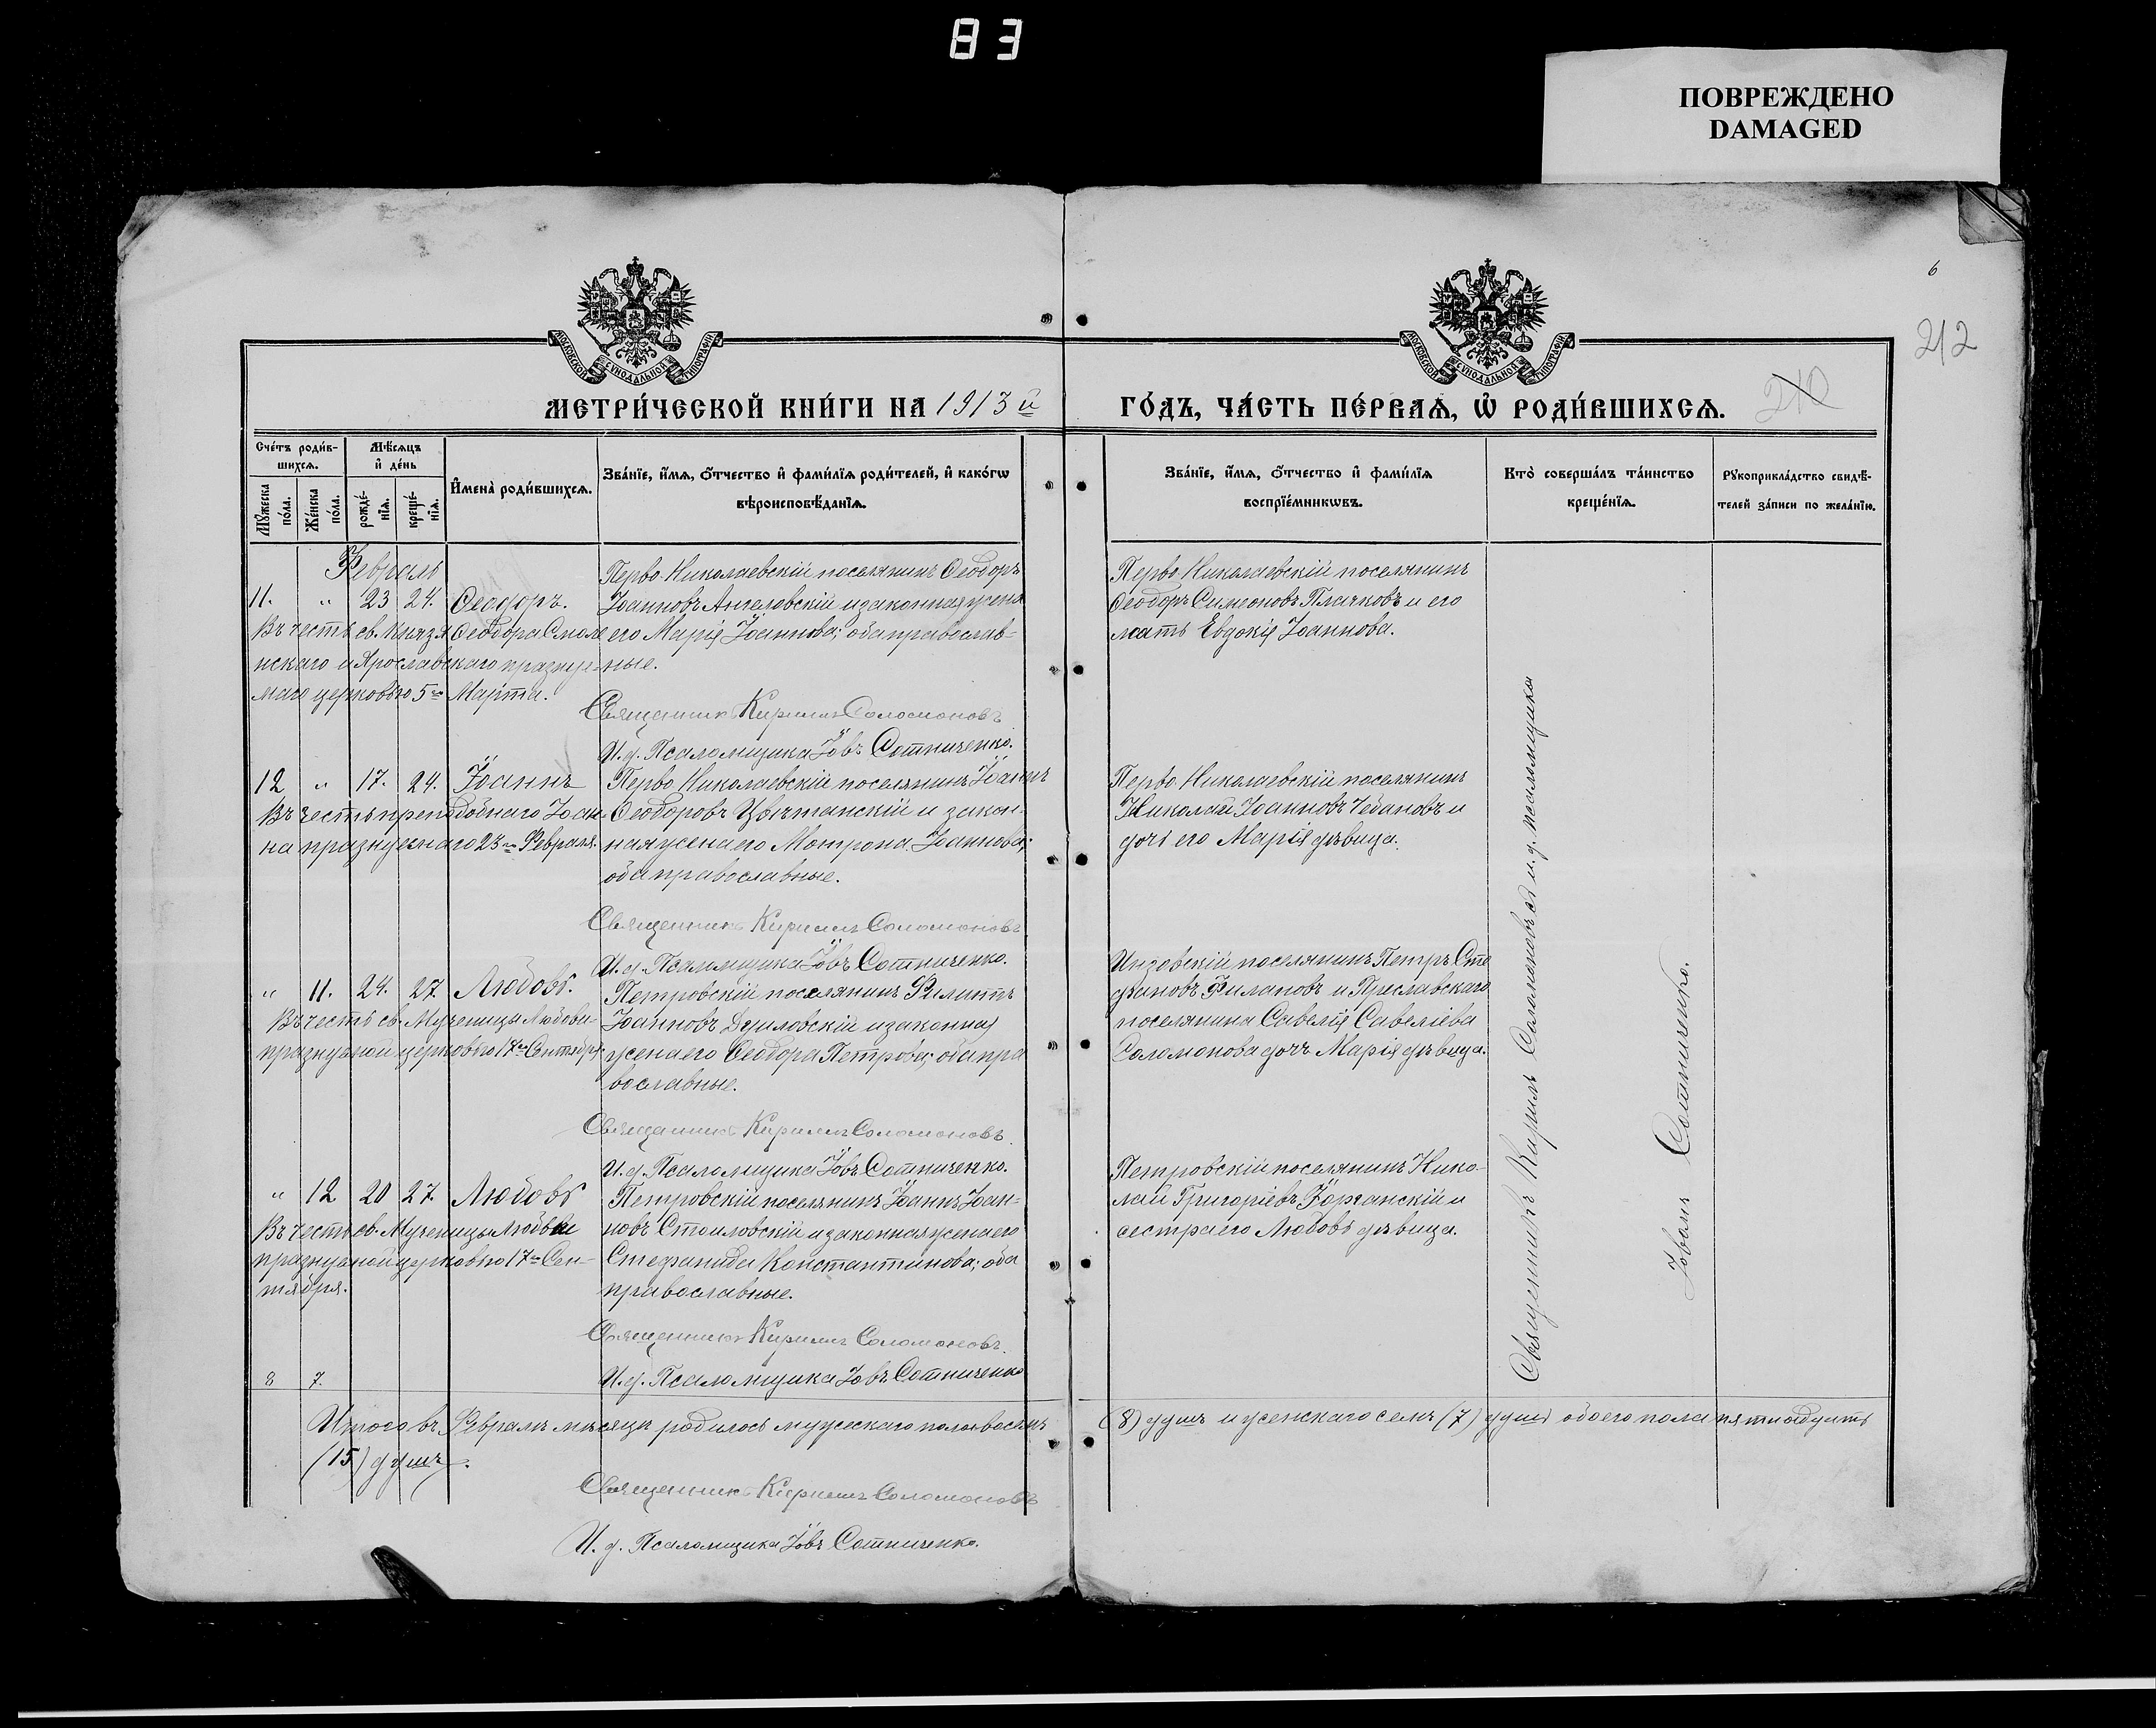 83
ПОВРЕЖДЕНО
DAMAGED
6
212
210
МОСКОВСКОЙ СѴНОДАЛЬНОЙ ТИПОГРАФІИ
МОСКОВСКОЙ СѴНОДАЛЬНОЙ ТИПОГРАФІИ
МЕТРИ́ЧЕСКОЙ КНИ́ГИ НА 1913 й
ГО́ДЪ, ЧА́СТЬ ПЕ́РВАѦ, Ѡ҆ РОДИ́ВШИХСѦ.
Сче́тъ роди́в-
шихсѧ.
Мꙋ́жеска по́ла.
Же́нска по́ла.
Мѣ́сѧцъ
и҆ де́нь
рожде́-
нїѧ.
креще́-
нїѧ.
И҆мена̀ роди́вшихсѧ.
Зва́нїе, и҆́мѧ, ѻ҆́тчество и҆ фами́лїѧ роди́телей, и҆ како́гѡ
вѣроисповѣ́данїѧ.
Зва́нїе, и҆́мѧ, ѻ҆́тчество и҆ фами́лїѧ
воспрїе́мникѡвъ.
Кто̀ соверша́лъ та́инство
креще́нїѧ.
Рꙋкоприкла́дство свидѣ́-
телей за́писи по жела́нїю.
Февраль
11. " 23 24. Ѳеодоръ.
Въ честь св. Князя Ѳеодора Смоле
нскаго и Ярославскаго празнуе-
маго церковью 5го Марта.
Перво Николаевскій поселянинъ Ѳеодоръ
Іоанновъ Ангеловскій и законная жена
его Марія Іоаннова; оба православ-
ные.
Священникъ Кириллъ Соломоновъ
И. д. Псаломщика Іовъ Сотниченко.
Перво Николаевскій поселянинъ
Ѳеодоръ Симеоновъ Плачковъ и его
мать Евдокія Іоаннова.
12 " 17. 24. Іоаннъ
Въ честь преподобнаго Іоан-
на празнуемаго 23го Февраля.
Перво Николаевскій поселянинъ Іоаннъ
Ѳеодоровъ Цвѣтанскій и закон-
ная жена его Мотрона Іоаннова;
оба православные.
Священникъ Кириллъ Соломоновъ
И. д. Псаломщика Іовъ Сотниченко.
Перво Николаевскій поселянинъ
Николай Іоанновъ Чебановъ и
дочь его Марія дѣвица.
" 11. 24. 27. Любовь.
Въ честь св. Мученицы Любови-
празнуемой церковью 17го Сентября
Петровскій поселянинъ Филиппъ
Іоанновъ и законная
жена его Ѳеодора Петрова; оба пра
вославные.
Священникъ Кириллъ Соломоновъ.
И. д. Псаломщика Іовъ Сотниченко.
Инзовскій поселянинъ Петръ Сте
фановъ Филаповъ и Преславскаго
поселянина Савелія Савеліева
Соломонова дочь Марія дѣвица.
" 12 20 27. Любовь
Въ честь св. Мученицы Любви
празнуемой церковью 17го Сен-
тября.
Петровскій поселянинъ Іоаннъ Іоан-
новъ Стоиловскій и законная жена его
Стефанида Константинова; оба
православные.
Священникъ Кириллъ Соломоновъ.
И. д. Псаломщика Іовъ Сотниченко
Петровскій поселянинъ Нико-
лай Григоріевъ и
сестра его Любовь дѣвица.
Священникъ Кириллъ Соломоновъ съ и. д. псаломщика
Іовомъ Сотниченко.
8 7.
Итого въ Февралѣ мѣсяцѣ родилось мужескаго пола восемь (8) душъ и женскаго семь (7) душъ обоего пола пятнадцать
(15) душъ.
Священникъ Кириллъ Соломоновъ
И. д. Псаломщика Іовъ Сотниченко.